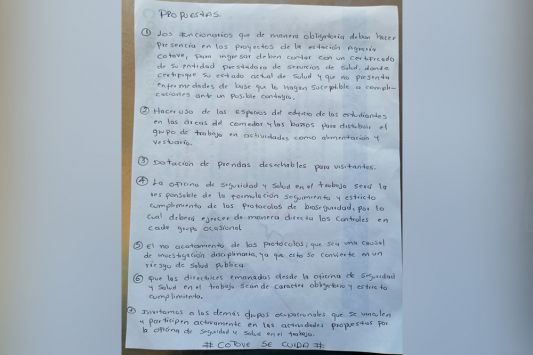 PROPUESTAS
① Los funcionarios que de manera obligatoria deban hacer
presencia en los proyectos de la estación Agraria
Cotove, para ingresar deben contar con un certificado
de su entidad prestadora de servicios de salud, donde
certifique su estado actual de salud y que no presenta
enfermedades de base que lo hagan suceptible a compli-
caciones ante un posible contagio.
② Hacer uso de los espacios del edificio de los estudiantes
en las áreas del comedor y los baños para distribuir el
grupo de trabajo en actividades como alimentación y
vestuario.
③ Dotación de prendas desechables para visitantes.
④ La oficina de seguridad y salud en el trabajo será la
responsable de la formulación seguimiento y estricto
cumplimiento de los protocolos de bioseguridad, por lo
cual deberá ejercer de manera directa los controles en
cada grupo ocasional
⑤ El no acatamiento de los protocolos, que sea una causal
de investigación disciplinaria, ya que esto se convierte en un
riesgo de salud pública.
⑥ Que las directrices emanadas desde la oficina de Seguridad
y Salud en el trabajo sean de caracter obligatorio y estricto
cumplimiento.
⑦ Invitamos a los demás grupos ocupacionales que se vinculen
y participen activamente en las actividades propuestas por
la oficina de seguridad y salud en el trabajo.
# COTOVE SE CUIDA #